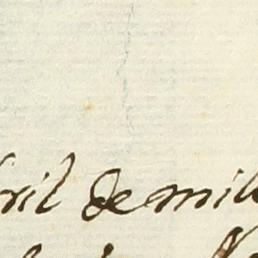 ril de mil